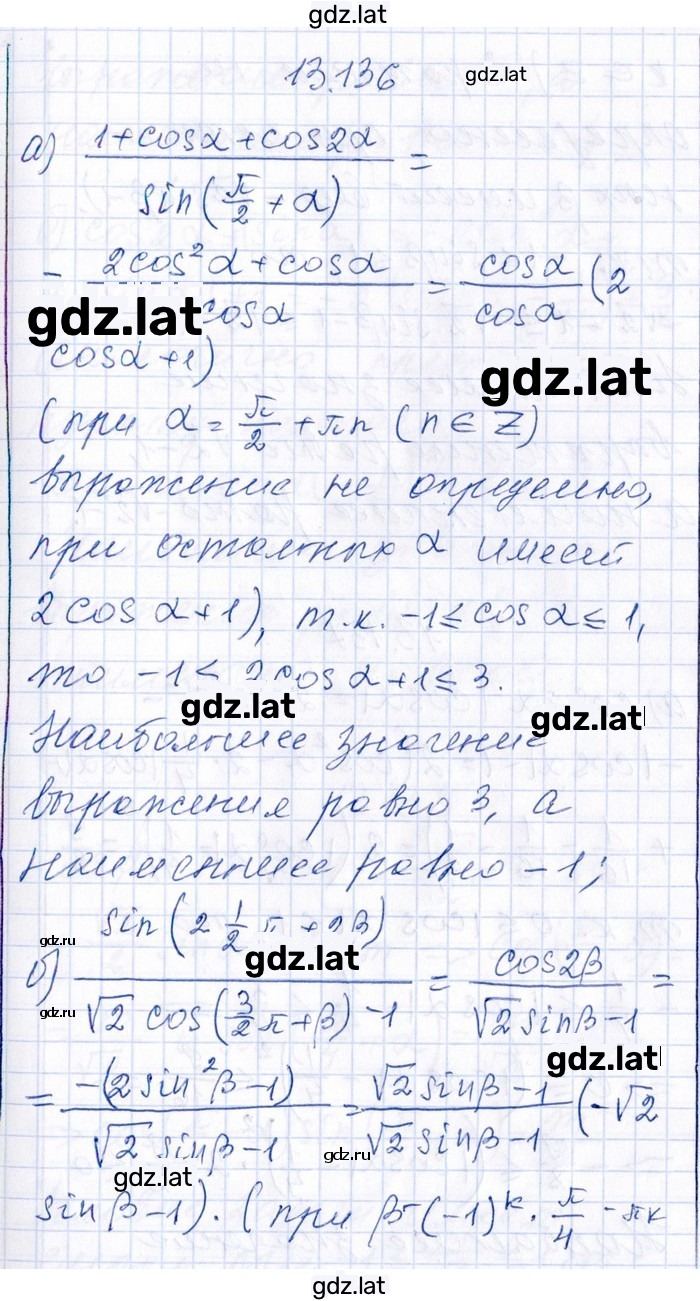 gdz.lat
13.136 gdz.lat
а) (1+cosα+cos2α)/(sin(π/2+α)) =
- (2cos²α+cosα)/(cosα) = cosα/cosα (2
gdz.lat
cosα+1)
gdz.lat
(при α = π/2 + πn (n ∈ Z)
выражение не определено,
при остальных α имеет
2cosα+1), т.к. -1≤cosα≤1,
то -1≤2cosα+1≤3.
gdz.lat gdz.lat
Наибольшее значение
выражения равно 3, а
наименьшее равно -1;
gdz.ru
б) (sin(2 1/2 π+2β))/(√2 cos(3/2 π+β)-1) = cos2β/(√2 sinβ-1) =
gdz.lat
gdz.ru
gdz.lat
= (-(2sin²β-1))/(√2 sinβ-1) = (√2 sinβ-1)/(√2 sinβ-1) (-√2
gdz.ru
gdz.lat
sinβ-1). (при β-(-1)ᵏ·π/4-πk
gdz.lat